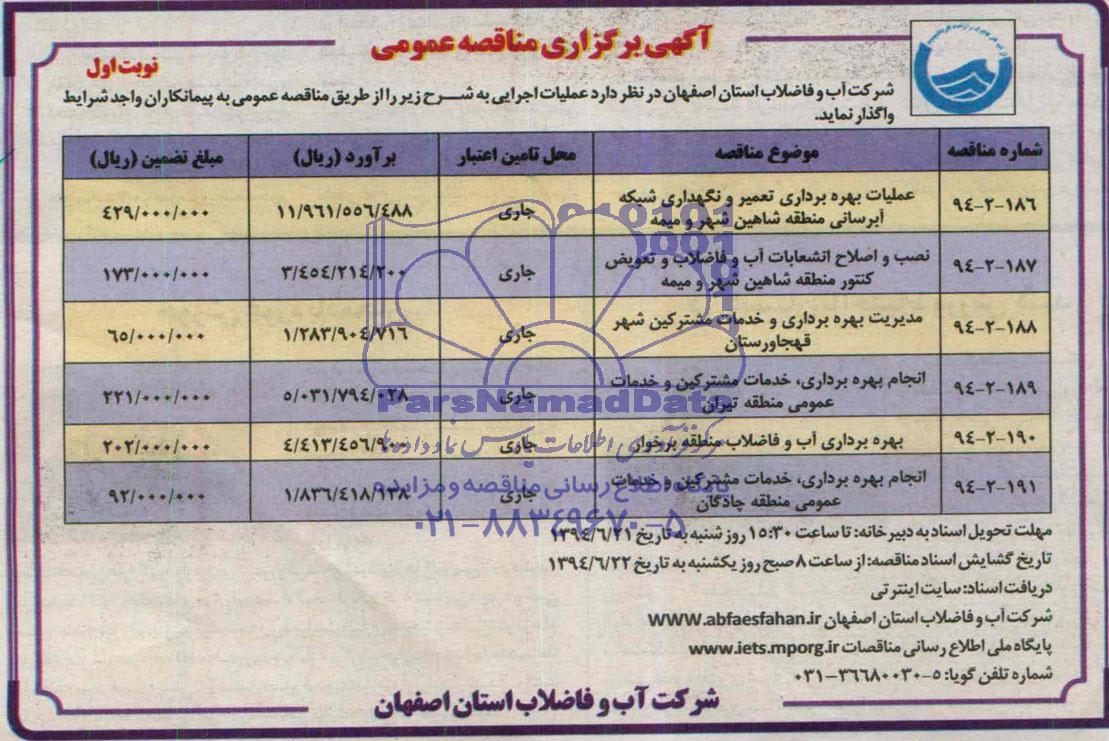 آگهی برگزاری مناقصه عمومی
نوبت اول
شرکت آب و فاضلاب استان اصفهان در نظر دارد عملیات اجرایی به شرح زیر را از طریق مناقصه عمومی به پیمانکاران واجد شرایط
واگذار نماید.
شماره مناقصه موضوع مناقصه محل تامین اعتبار برآورد (ریال) مبلغ تضمین (ریال)
۹۴-۲-۱۸۶ عملیات بهره برداری تعمیر و نگهداری شبکه جاری ۱۱/۹۶۱/۵۵۶/۴۸۸ ۴۲۹/۰۰۰/۰۰۰
آبرسانی منطقه شاهین شهر و میمه
۹۴-۲-۱۸۷ نصب و اصلاح انشعابات آب و فاضلاب و تعویض جاری ۳/۴۵۴/۲۱۴/۲۰۰ ۱۷۳/۰۰۰/۰۰۰
کنتور منطقه شاهین شهر و میمه
۹۴-۲-۱۸۸ مدیریت بهره برداری و خدمات مشترکین شهر جاری ۱/۲۸۳/۹۰۴/۷۱۶ ۶۵/۰۰۰/۰۰۰
قهجاورستان
۹۴-۲-۱۸۹ انجام بهره برداری، خدمات مشترکین و خدمات جاری ۵/۰۳۱/۷۹۴/۰۲۸ ۲۲۱/۰۰۰/۰۰۰
عمومی منطقه تیران
ParsNamadData
۹۴-۲-۱۹۰ بهره برداری آب و فاضلاب منطقه برخوار جاری ۴/۴۱۳/۴۵۶/۹۰۰ ۲۰۲/۰۰۰/۰۰۰
مرکز فرآوری اطلاعات پارس نماد داده‌ها
۹۴-۲-۱۹۱ انجام بهره برداری، خدمات مشترکین و خدمات جاری ۱/۸۳۶/۴۱۸/۱۳۸ ۹۲/۰۰۰/۰۰۰
عمومی منطقه چادگان
پایگاه اطلاع رسانی مناقصه و مزایده
۰۲۱-۸۸۳۴۹۶۷۰-۵
مهلت تحویل اسناد به دبیرخانه: تا ساعت ۱۵:۳۰ روز شنبه به تاریخ ۱۳۹۴/۶/۲۱
تاریخ گشایش اسناد مناقصه: از ساعت ۸ صبح روز یکشنبه به تاریخ ۱۳۹۴/۶/۲۲
دریافت اسناد: سایت اینترتی
شرکت آب و فاضلاب استان اصفهان WWW.abfaesfahan.ir
پایگاه ملی اطلاع رسانی مناقصات www.iets.mporg.ir
شماره تلفن گویا: ۵-۳۶۶۸۰۰۳۰-۰۳۱
شرکت آب و فاضلاب استان اصفهان